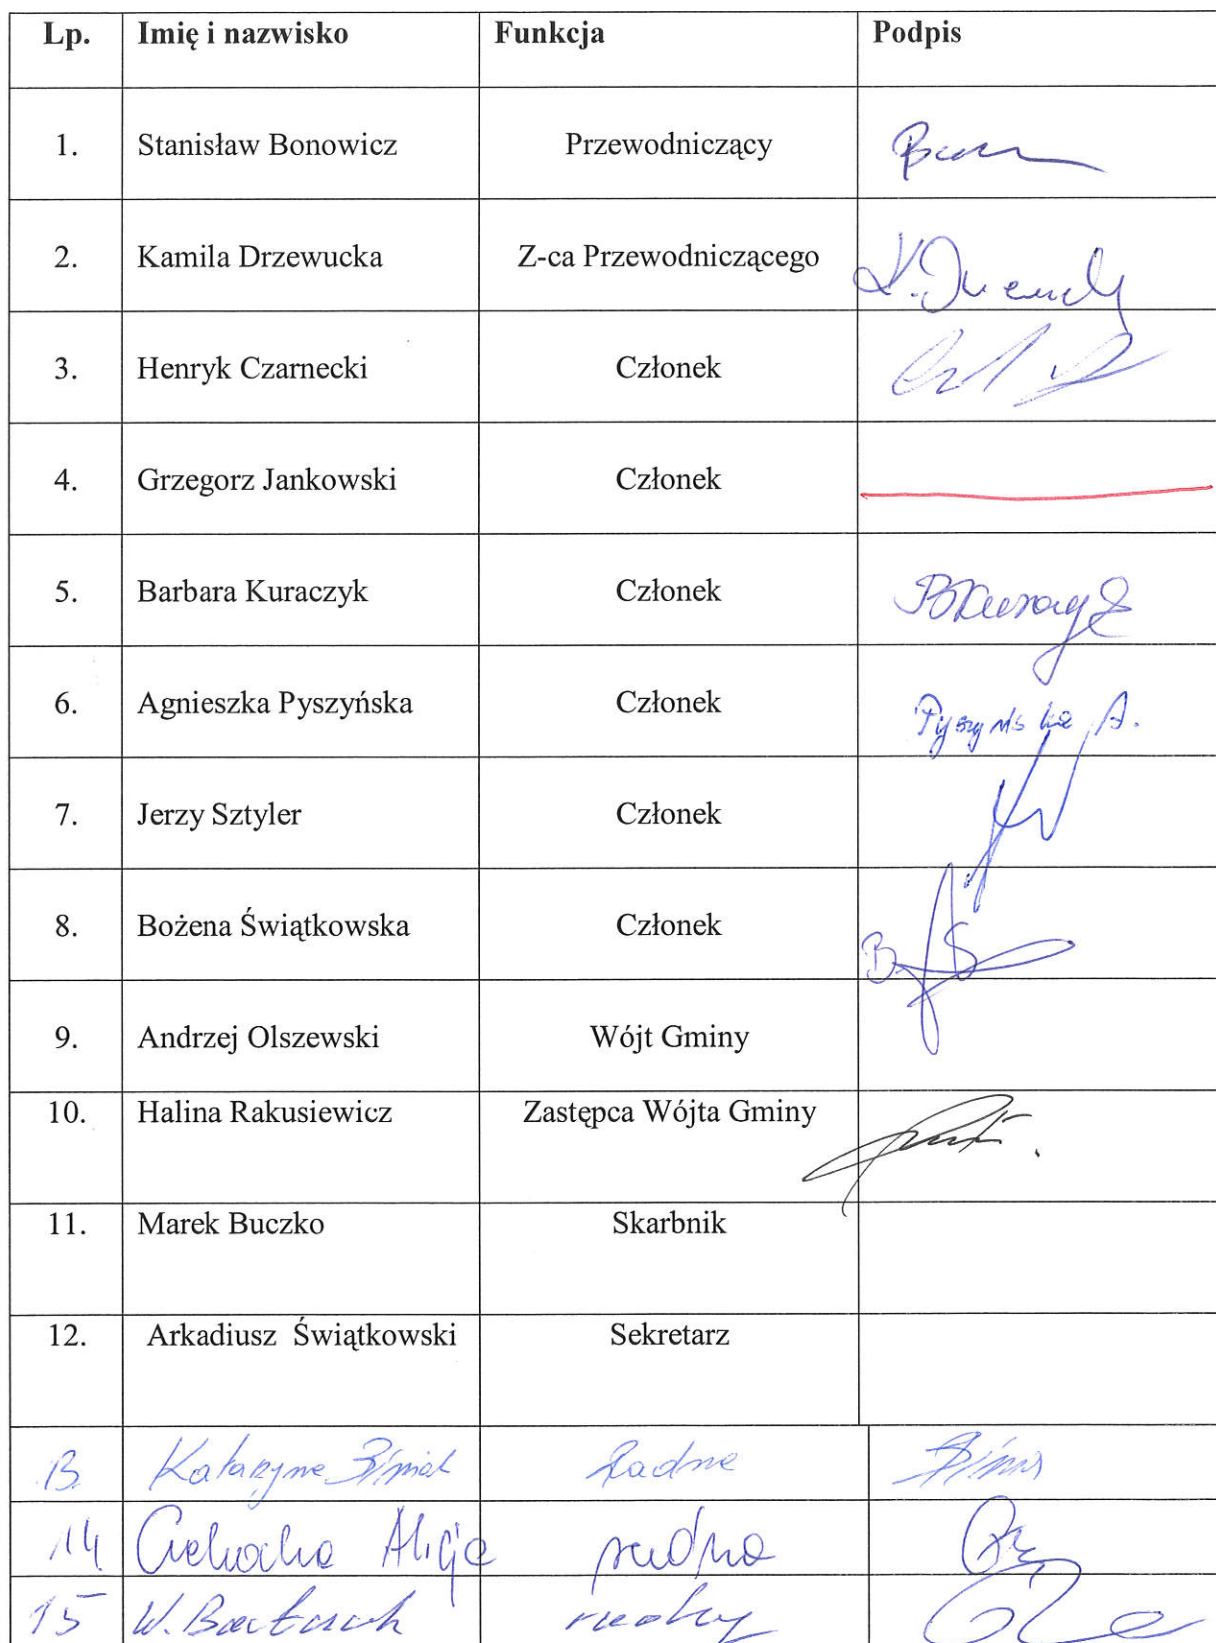 Lp. Imię i nazwisko Funkcja Podpis
1. Stanisław Bonowicz Przewodniczący
2. Kamila Drzewucka Z-ca Przewodniczącego
3. Henryk Czarnecki Członek
4. Grzegorz Jankowski Członek
5. Barbara Kuraczyk Członek
6. Agnieszka Pyszyńska Członek Pyszyńska A.
7. Jerzy Sztyler Członek
8. Bożena Świątkowska Członek
9. Andrzej Olszewski Wójt Gminy
10. Halina Rakusiewicz Zastępca Wójta Gminy
11. Marek Buczko Skarbnik
12. Arkadiusz Świątkowski Sekretarz
13. Katarzyna Radna
14 Alicja radna
15 W. radny